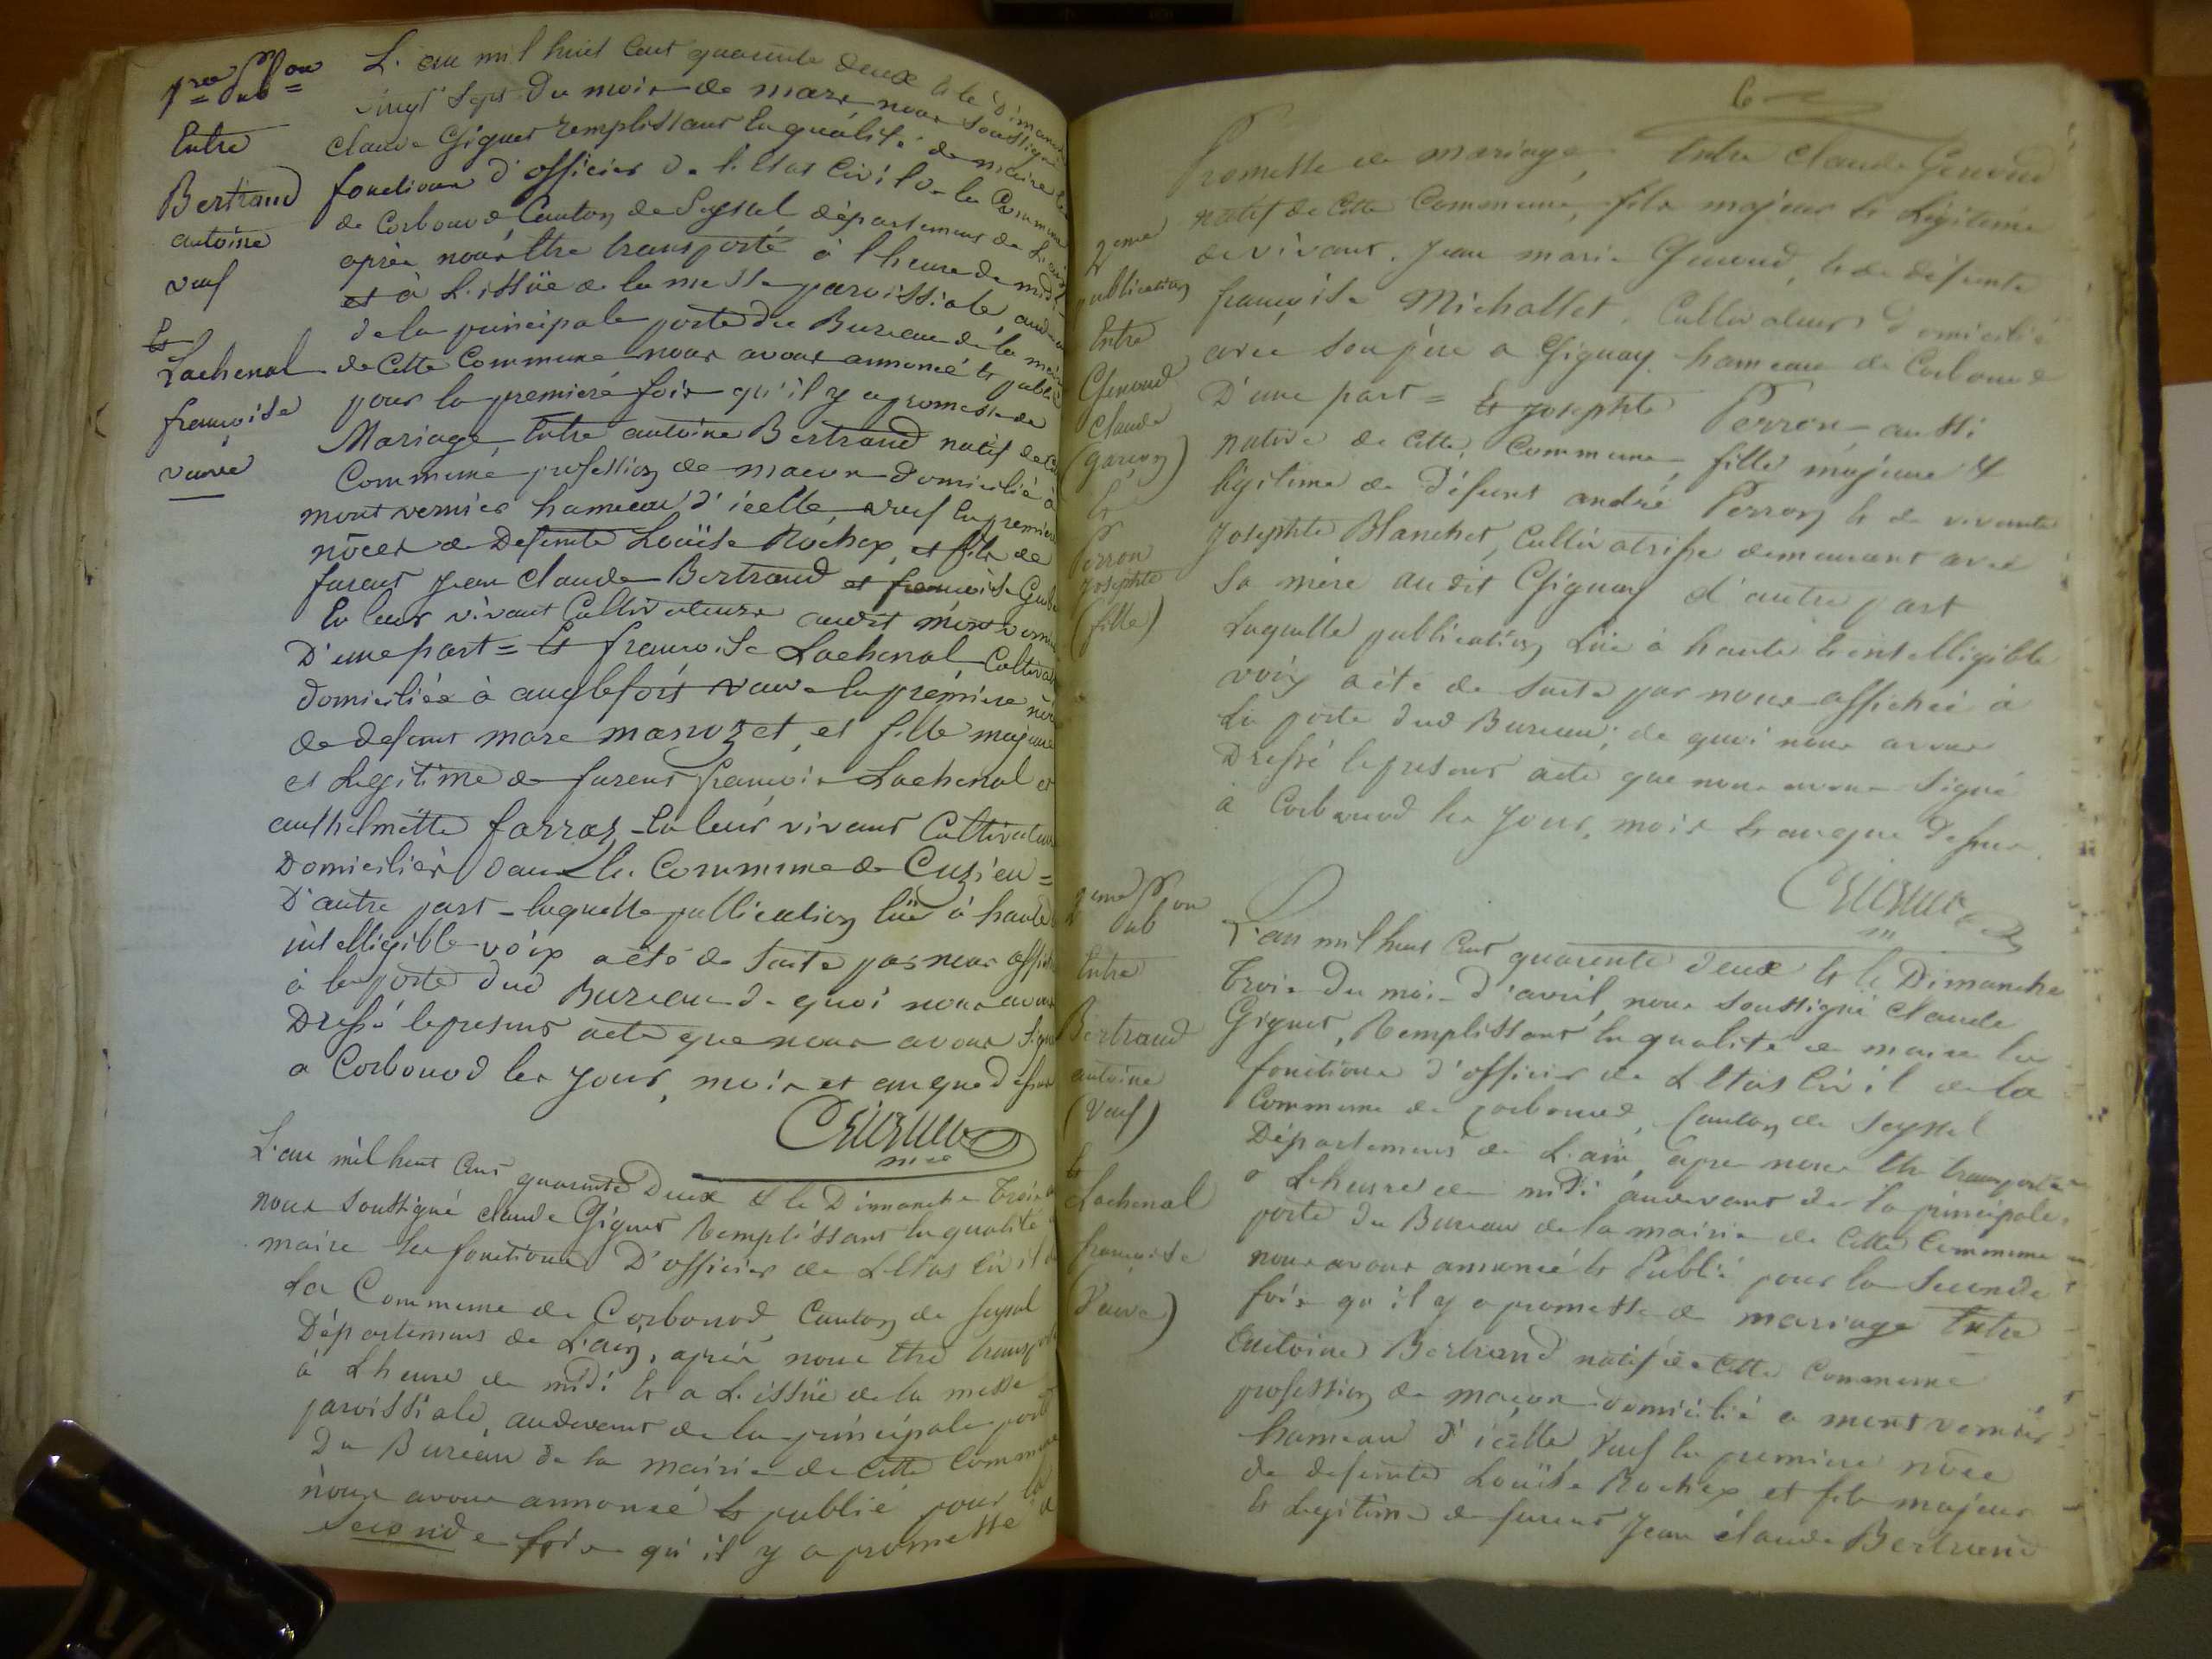 1re Pub on
Entre
Bertrand
antoine
veuf
et
Lachenal
françoise
veuve
L'an mil huit cent quarante deux et le Dimanche
vingt sept du mois de mars, nous soussigné
Claude Giguet remplissant la qualité de maire les
fonctions d'officier de l'Etat Civil de la Commune
de Corbonod, Canton de Seyssel département de L'ain
après nous être transporté à l'heure de midi
et à L'issüe de la messe paroissiale, audevant
de la principale porte du Bureau de la mairie
de Cette Commune nous avons annoncé et publié
pour la premiere fois qu'il y a promesse de
Mariage, Entre antoine Bertrand natif de Cette
Commune profession de macon domicilié à
montvernier hameau d'icelle, veuf En premiere
nôces de Defunte Louïse Rochex, et fils de
furent Jean Claude Bertrand et françoise
En leur vivant Cultivateurs audit montvernier
D'une part = Et françoise Lachenal Cultivatrice
domiciliée à anglefort veuve En première nôce
de defunt marc marrozet, et fille majeure
et Legitime de furent françois Lachenal et
anthelmette farraz En leur vivant Cultivateurs
Domiciliés dans La Commune de Cuzieu =
D'autre part - laquelle publication lüe à haute
intelligible voix a été de suite par nous affichée
à la porte dud Bureau de quoi nous avons
Dressé le present acte que nous avons signé
a Corbonod les jour, mois et an que dessus
Giguet
mre
L'an mil huit Cent quarante Deux & le Dimanche trois
nous soussigné Claude Giguet Remplissant la qualité
maire les fonctions D'officier de L'Etat Civil de
La Commune de Corbonod, Canton de Seyssel
Département de L'ain, après nous être transporté
à L'heure de midi et a L'issüe de la messe
paroissiale, audevant de la principale porte
Du Bureau de la mairie de Cette Commune
nous avons annoncé et publié pour la
Seconde fois qu'il y a promesse de
6
2eme
publication
Entre
Genoud
Claude
(garcon)
et
Perron
Josephte
(fille)
Promesse de mariage, Entre Claude Genoud
natif de Cette Commune, fils majeur et Légitime
de vivant Jean marie Genoud, et de défunte
françoise Michallet, Cultivateur domicilié
avec son père a Gignay hameau de Corbonod
D'une part = Et Josephte Perron, aussi
native de Cette Commune, fille majeure &
légitime de défunt andré Perron et de vivante
Josephte Blanchet, Cultivatrisse demeurant avec
Sa mère audit Gignay d'autre part
Laquelle publication Lüe à haute et intelligible
voix a été de suite par nous affichée à
La porte dud Bureau; de quoi nous avons
Dressé le present acte que nous avons signé
à Corbonod les jour, mois et an que dessus.
Giguet
m
2eme Pub on
Entre
Bertrand
antoine
(Veuf)
et
Lachenal
françoise
(Veuve)
L'an mil huit Cent quarente deux et le Dimanche
trois du mois d'avril, nous soussigné Claude
Giguet, Remplissant la qualité de maire les
fonctions d'officier de L'Etat Civil de la
Commune de Corbonod, Canton de Seyssel
Département de L'ain, apres nous être transporté
a L'heure de midi audevant de la principale
porte du Bureau de la mairie de Cette Commune
nous avons annoncé et Publié pour la Seconde
fois qu'il y a promesse de mariage Entre
Antoine Bertrand natif de Cette Commune
profession de maçon domicilié a montvernier
hameau d'icelle Veuf En premiere nôce
de defunte Louïse Rochex, et fils majeur
et Legitime de furent Jean Claude Bertrand